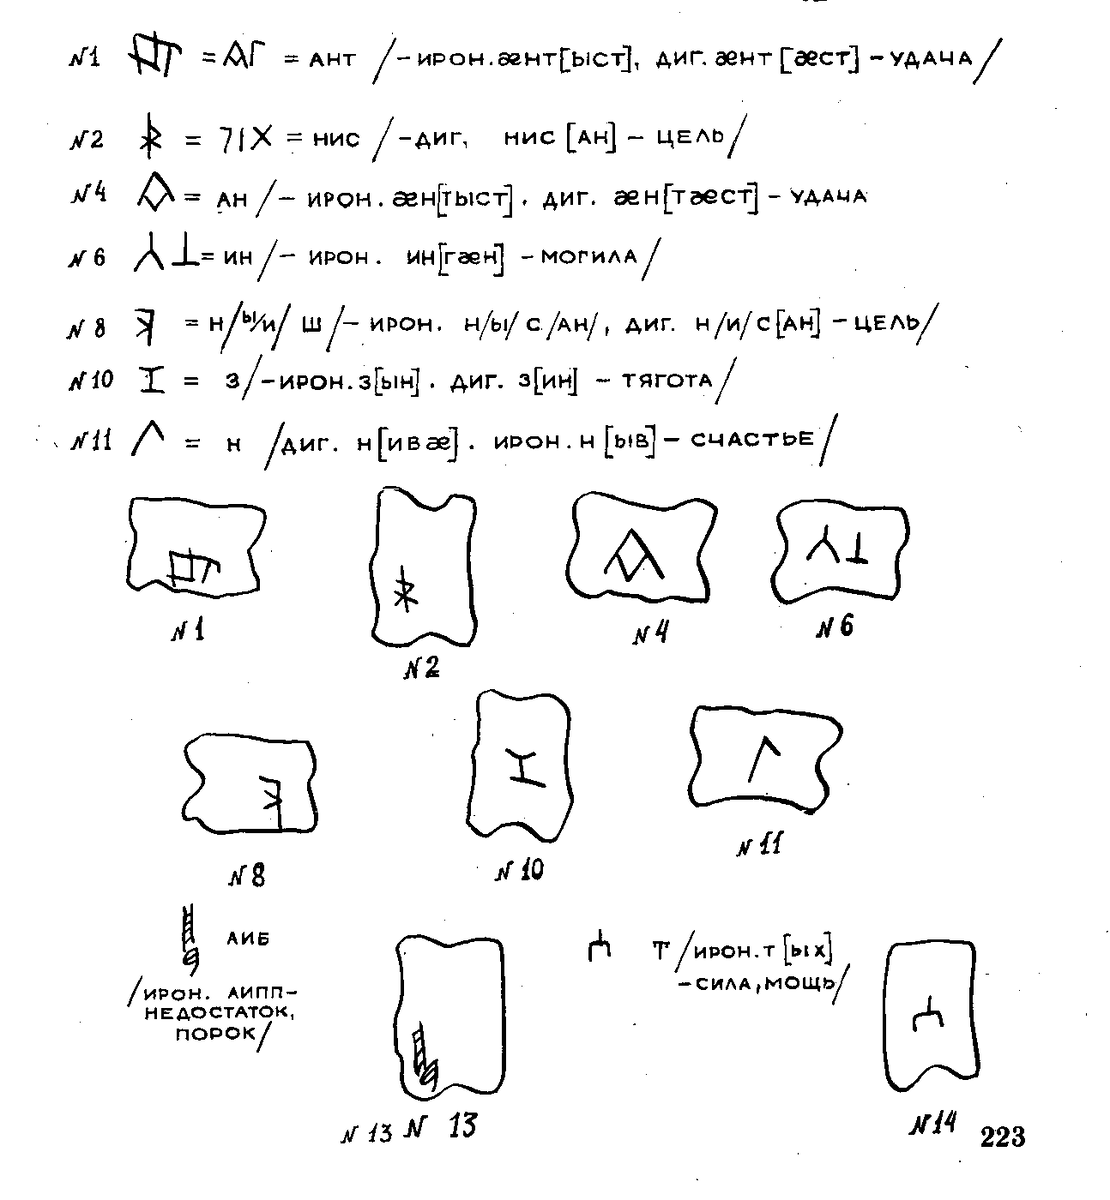 N1 = АГ = АНТ /-ИРОН. ӕНТ[ЫСТ], ДИГ. ӕНТ [ӕСТ] - УДАЧА/
N2 = 71X = НИС /-ДИГ, НИС [АН] - ЦЕЛЬ/
N4 = АН /- ИРОН. ӕН[ТЫСТ]. ДИГ. ӕН[ТӕСТ] - УДАЧА
N 6 = ИН /- ИРОН. ИН[Гӕн] - МОГИЛА/
N 8 = Н/Ы/И/ Ш /- ИРОН. Н/Ы/ С /АН/, ДИГ. Н/И/С[АН] - ЦЕЛЬ/
N10 = З /-ИРОН. З[ЫН]. ДИГ. З[ИН] - ТЯГОТА/
N11 = Н /ДИГ. Н[ИВӕ]. ИРОН. Н [ЫВ] - СЧАСТЬЕ/
N1
N2
N4
N6
N8
N10
N11
АИБ
/ИРОН. АИПП-
НЕДОСТАТОК,
ПОРОК/
Т /ИРОН. Т [ЫХ]
-СИЛА, МОЩЬ/
N 13 N 13
N14
223